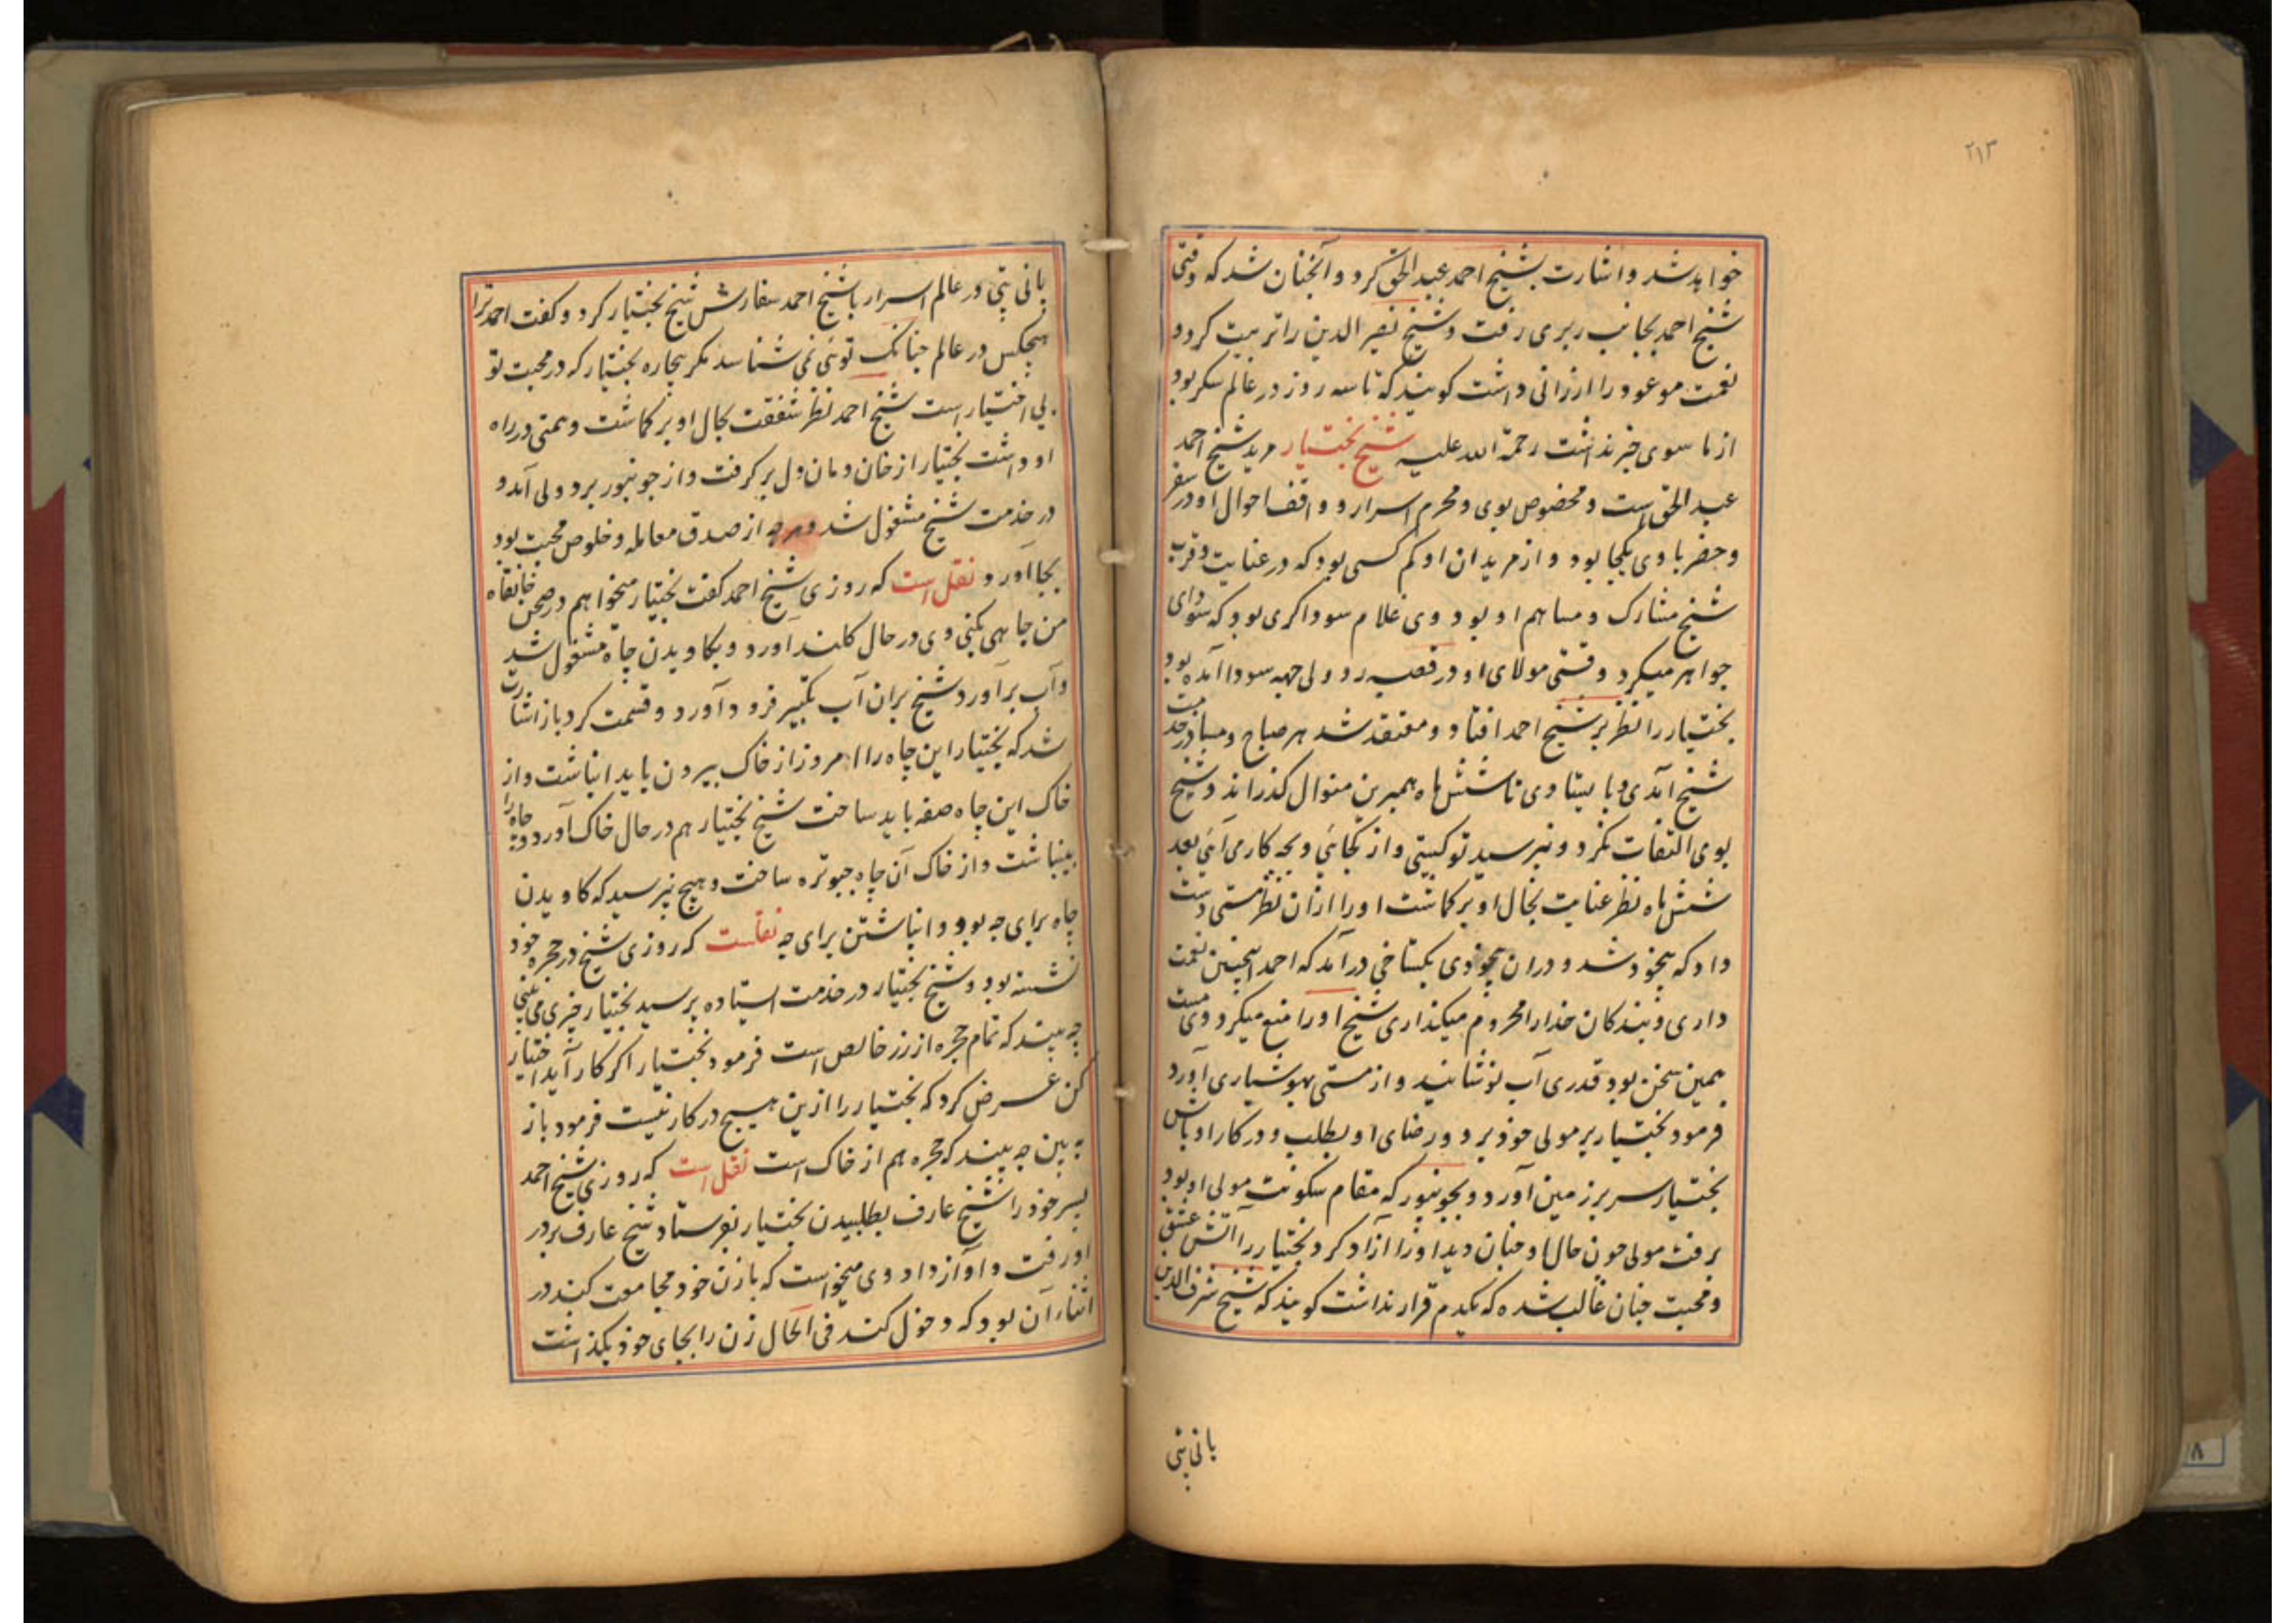 ۲۱۳
خواهد شد و اشارت بشیخ احمد عبد الحق کرد و آنچنان شد که وقتی
شیخ احمد بجانب ربری رفت و شیخ نصیر الدین را تربیت کرد و
نعمت موعود را ارزانی داشت کویند که تا سه روز در عالم سکر بود
از ما سوی خبر نداشت رحمة الله علیه شیخ بختیار مرید شیخ احمد
عبد الحق است و مخصوص بوی و محرم اسرار و واقف احوال او در سفر
و حضر با وی یکجا بود و از مریدان او کم کسی بود که در عنایت و قرب
شیخ مشارک و مساهم او بود وی غلام سوداکری بود که سودای
جواهر میکرد وقتی مولای او در قصبه ردولی جهه سودا آمده بود
بختیار را نظر بر شیخ احمد افتاد و معتقد شد هر صباح و مسا در خدمت
شیخ آمدی و بایستادی تا شش ماه همبرین منوال کذرانید و شیخ
بوی التفات نکرد و نپرسید تو کیستی و از کجائی و بچه کار می آئی بعد
شش ماه نظر عنایت بحال او بر کماشت او را ازان نظر مستی دست
داد که بیخود شد و دران بیخودی بکستاخی درآمد که احمد اینچنین نعمت
داری و بندکان خدا را محروم میکذاری شیخ او را منع میکرد و وی مست
همین سخن بود قدری آب نوشانید و از مستی بهوشیاری آورد
فرمود بختیار بر مولی خود برو و رضای او بطلب و در کار او باش
بختیار سر بر زمین آورد و بجونپور که مقام سکونت مولی او بود
برفت مولی چون حال او چنان دید او را آزاد کرد بختیار را آتش عشق
و محبت چنان غالب شده که یکدم قرار نداشت کویند که شیخ شرف الدین
پانی پتی
پانی پتی در عالم اسرار با شیخ احمد سفارش شیخ بختیار کرد و کفت احمد ترا
هیچکس در عالم چنانک توئی نمی شناسد مکر بیچاره بختیار که در محبت تو
بی اختیار است شیخ احمد نظر شفقت بحال او بر کماشت و همتی در راه
او داشت بختیار از خان و مان دل بر کرفت و از جونپور بردولی آمد و
در خدمت شیخ مشغول شد و هرچه از صدق معامله و خلوص محبت بود
بجا آورد نقل است که روزی شیخ احمد کفت بختیار میخواهم در صحن خانقاه
من چاهی بکنی وی در حال کلند آورد و بکاویدن چاه مشغول شد
و آب برآورد شیخ بران آب تکبیر فرود آورد و قسمت کرد باز اشارت
شد که بختیار این چاه را امروز از خاک بیرون باید انباشت و از
خاک این چاه صفه باید ساخت شیخ بختیار هم در حال خاک آورد و چاه را
بینباشت و از خاک آن چاه چبوتره ساخت و هیچ نپرسید که کاویدن
چاه برای چه بود و انباشتن برای چه نقلست که روزی شیخ در حجره خود
نشسته بود و شیخ بختیار در خدمت استاده پرسید بختیار چیزی می بینی
چه بیند که تمام حجره از زر خالص است فرمود بختیار اکر کار آید اختیار
کن عرض کرد که بختیار را ازین هیچ در کار نیست فرمود باز
به بین چه بیند که حجره هم از خاک است نقل است که روزی شیخ احمد
پسر خود را شیخ عارف بطلبیدن بختیار بفرستاد شیخ عارف بر در
او رفت و آواز داد وی میخواست که با زن خود مجامعت کند در
اثناء آن بود که دخول کند فی الحال زن را بجای خود بکذاشت
۸